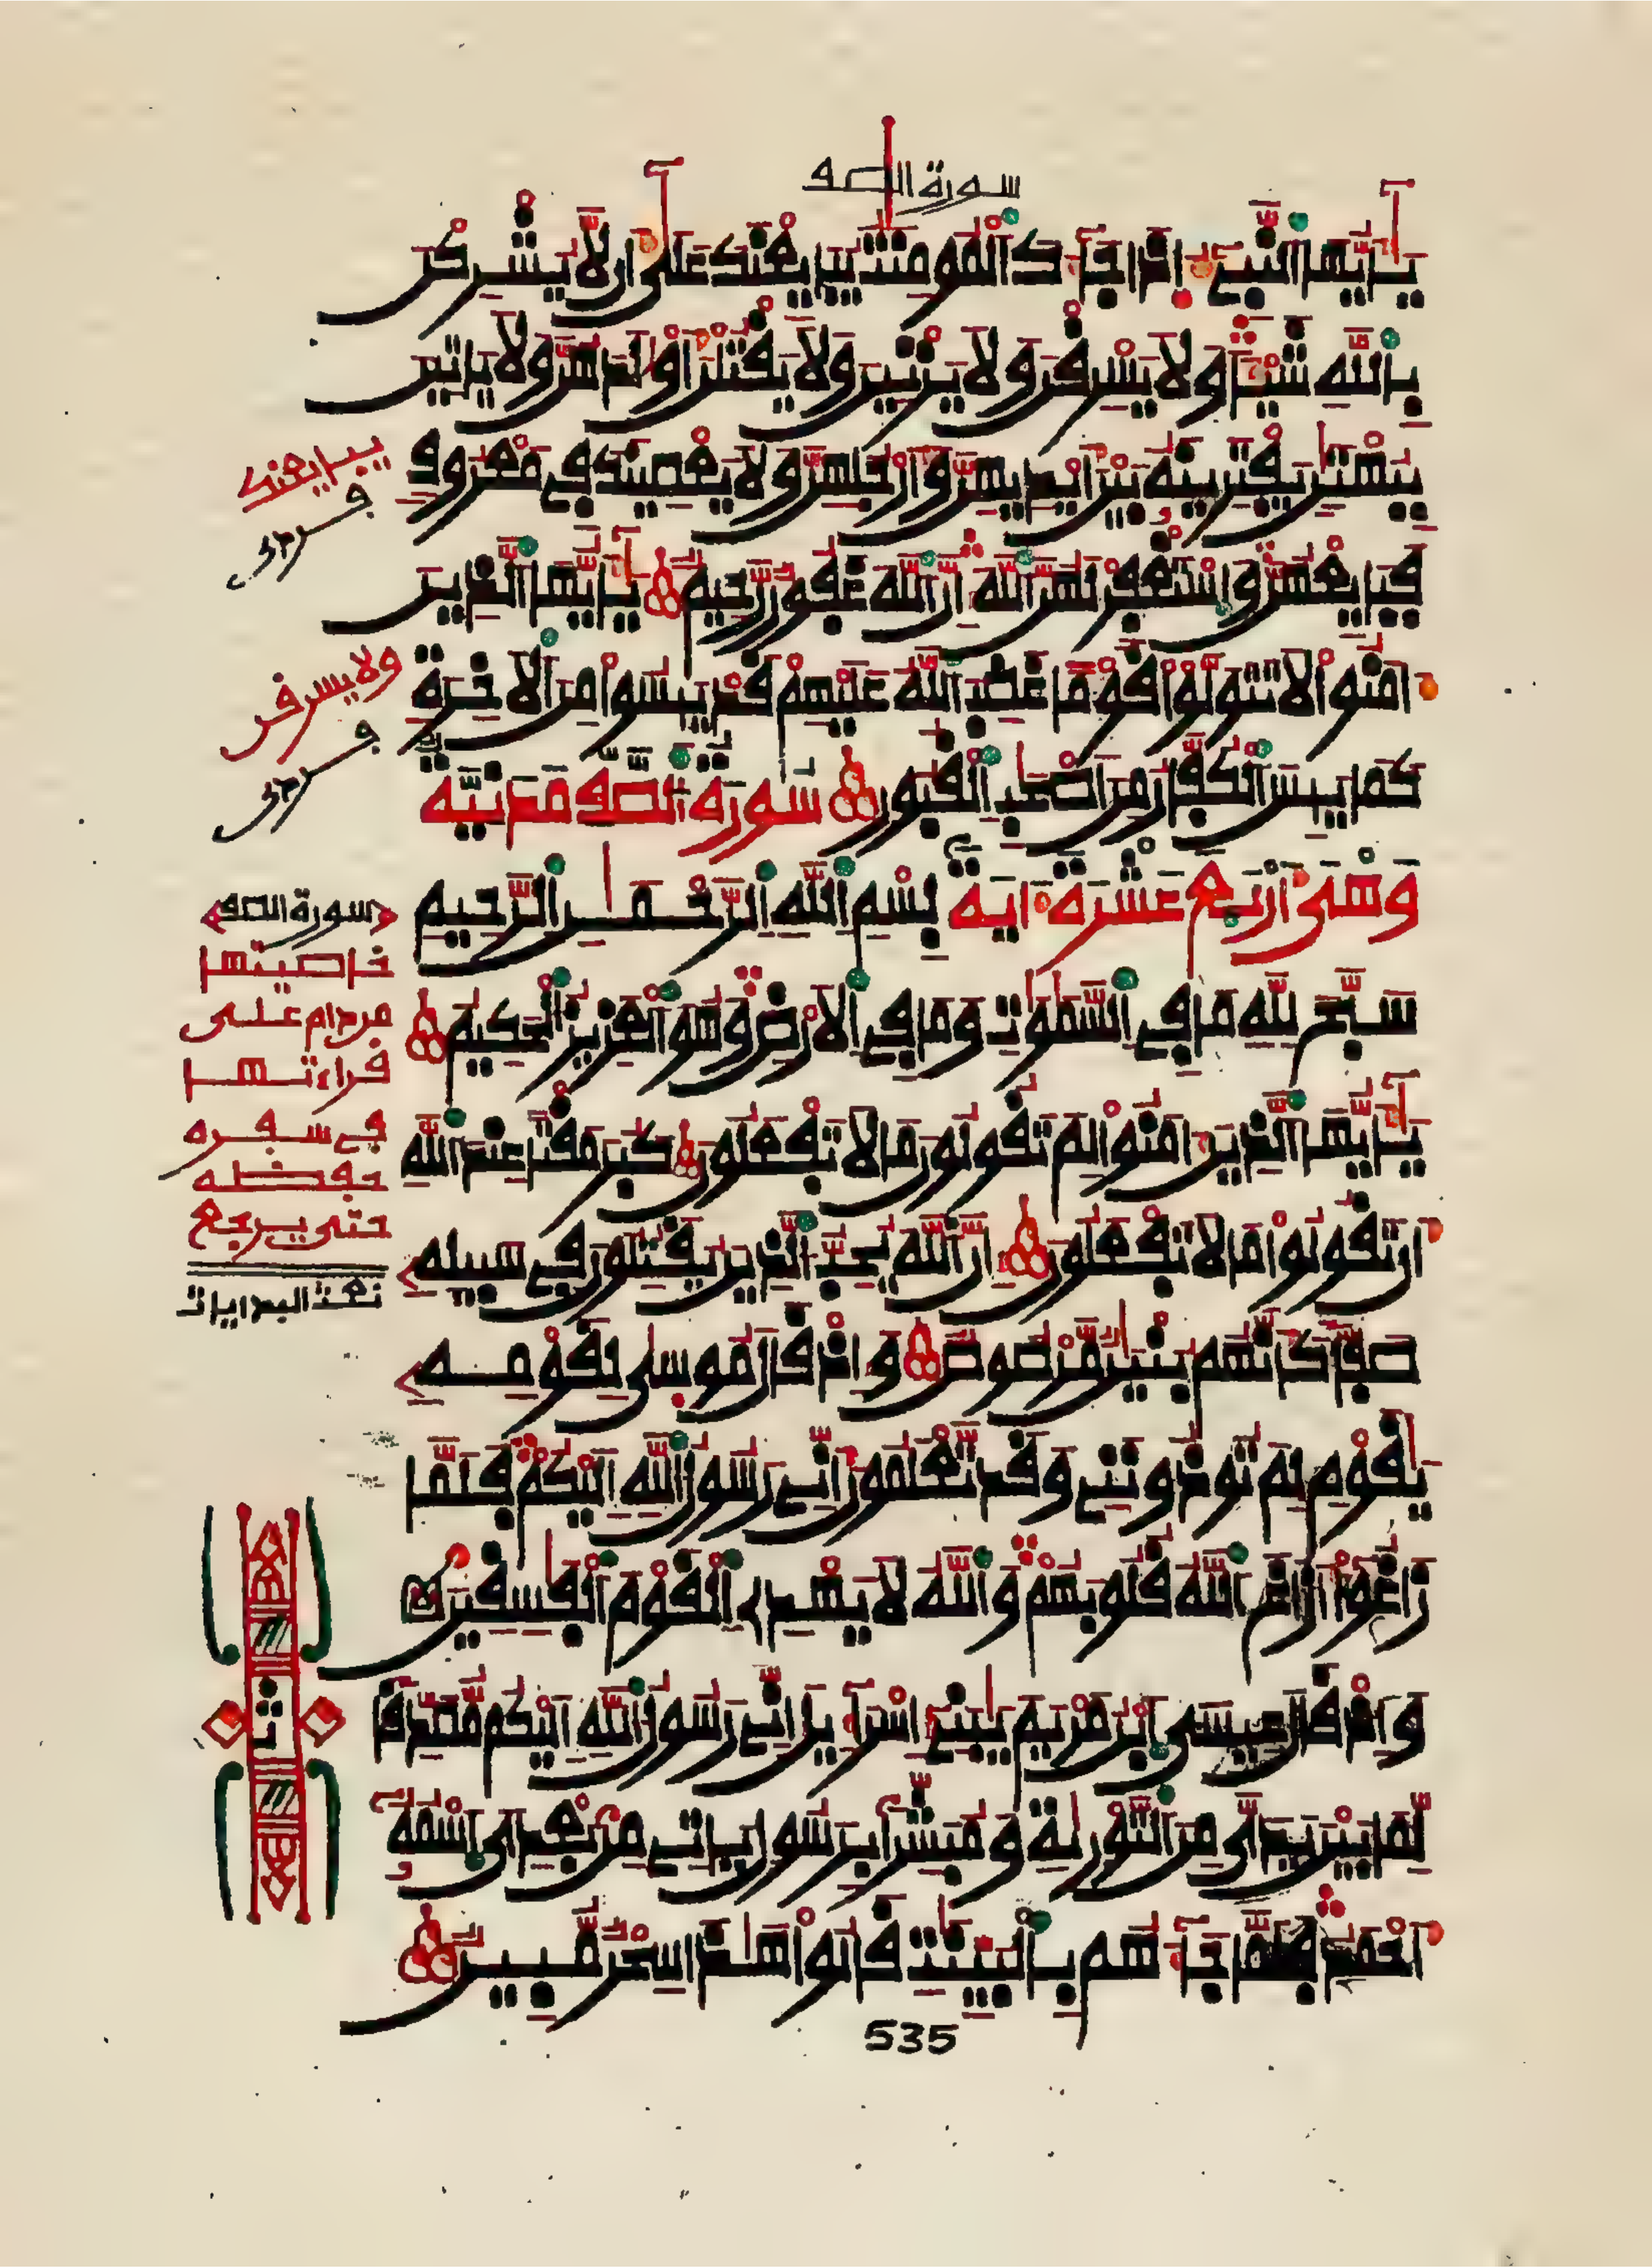 سورة الصف
يأيها النبيء اذا جاءك المومنت يبايعنك على ان لا يشركن
بالله شيئا ولا يسرقن ولا يزنين ولا يقتلن اولدهن ولا ياتين
ببهتن يفترينه بين ايديهن وارجلهن ولا يعصينك في معروف
فبايعهن واستغفر لهن الله ان الله غفور رحيم يأيها الذين
ءامنوا لا تتولوا قوما غضب الله عليهم قد يئسوا من الاخرة
كما يئس الكفار من اصحب القبور سورة الصف مدنية
وهي اربع عشرة ءاية بسم الله الرحمن الرحيم
سبح لله ما في السموت وما في الارض وهو العزيز الحكيم
يأيها الذين ءامنوا لم تقولون ما لا تفعلون كبر مقتا عند الله
ان تقولوا ما لا تفعلون ان الله يحب الذين يقتلون في سبيله
صفا كانهم بنين مرصوص واذ قال موسى لقومه
يقوم لم توذونني وقد تعلمون اني رسول الله اليكم فلما
زاغوا ازاغ الله قلوبهم والله لا يهدي القوم الفسقين
واذ قال عيسى ابن مريم يبني اسراءيل اني رسول الله اليكم مصدقا
لما بين يدي من التورية ومبشرا برسول ياتي من بعدي اسمه
احمد فلما جاءهم بالبينت قالوا هذا سحر مبين
535
يبايعنك
ولا يسرقن
سورة الصف
خاصيتها
من دام على
قراءتها
في سفره
حفظه
حتى يرجع
نعت البدايات